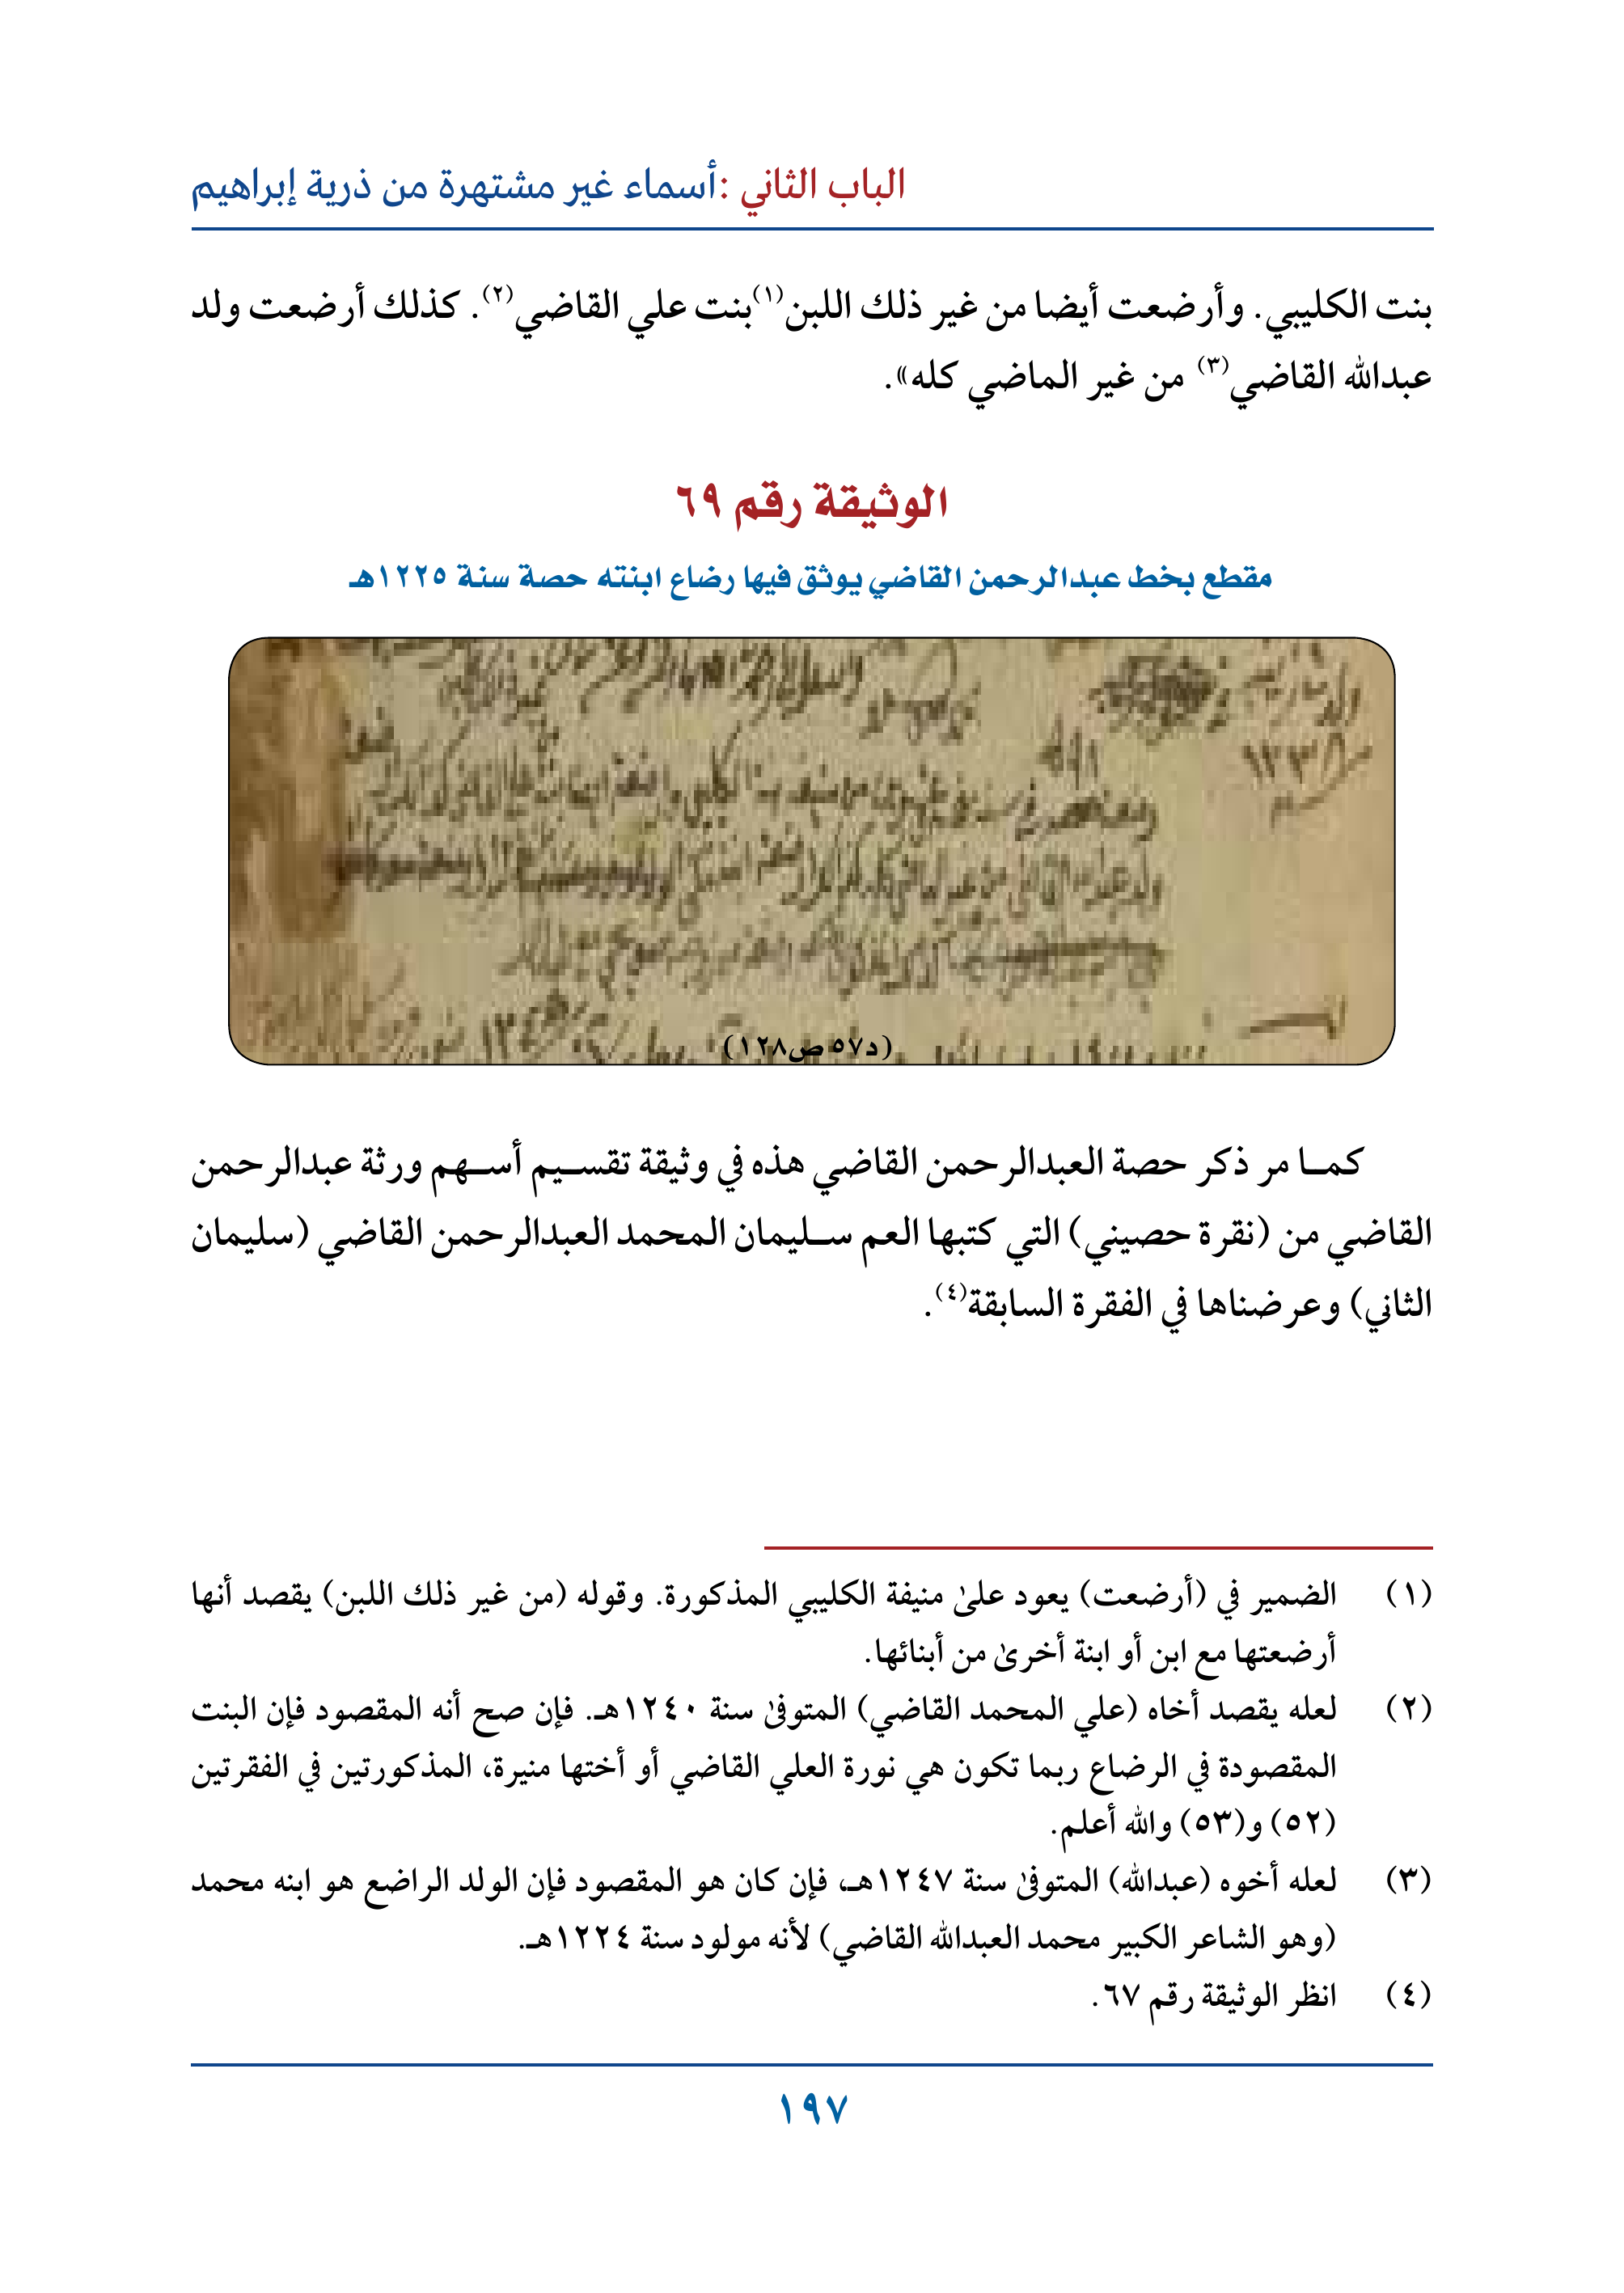 الباب الثاني :أسماء غير مشتهرة من ذرية إبراهيم
بنت الكليبي. وأرضعت أيضا من غير ذلك اللبن(١)بنت علي القاضي(٢). كذلك أرضعت ولد
عبدالله القاضي(٣) من غير الماضي كله».
الوثيقة رقم ٦٩
مقطع بخط عبدالرحمن القاضي يوثق فيها رضاع ابنته حصة سنة ١٢٢٥هـ
(د٥٧ ص١٢٨)
كمـا مر ذكر حصة العبدالرحمن القاضي هذه في وثيقة تقسـيم أسـهم ورثة عبدالرحمن
القاضي من (نقرة حصيني) التي كتبها العم سـليمان المحمد العبدالرحمن القاضي (سليمان
الثاني) وعرضناها في الفقرة السابقة(٤).
(١) الضمير في (أرضعت) يعود علىٰ منيفة الكليبي المذكورة. وقوله (من غير ذلك اللبن) يقصد أنها
أرضعتها مع ابن أو ابنة أخرىٰ من أبنائها.
(٢) لعله يقصد أخاه (علي المحمد القاضي) المتوفىٰ سنة ١٢٤٠هـ. فإن صح أنه المقصود فإن البنت
المقصودة في الرضاع ربما تكون هي نورة العلي القاضي أو أختها منيرة، المذكورتين في الفقرتين
(٥٢) و(٥٣) والله أعلم.
(٣) لعله أخوه (عبدالله) المتوفىٰ سنة ١٢٤٧هـ، فإن كان هو المقصود فإن الولد الراضع هو ابنه محمد
(وهو الشاعر الكبير محمد العبدالله القاضي) لأنه مولود سنة ١٢٢٤هـ.
(٤) انظر الوثيقة رقم ٦٧.
١٩٧